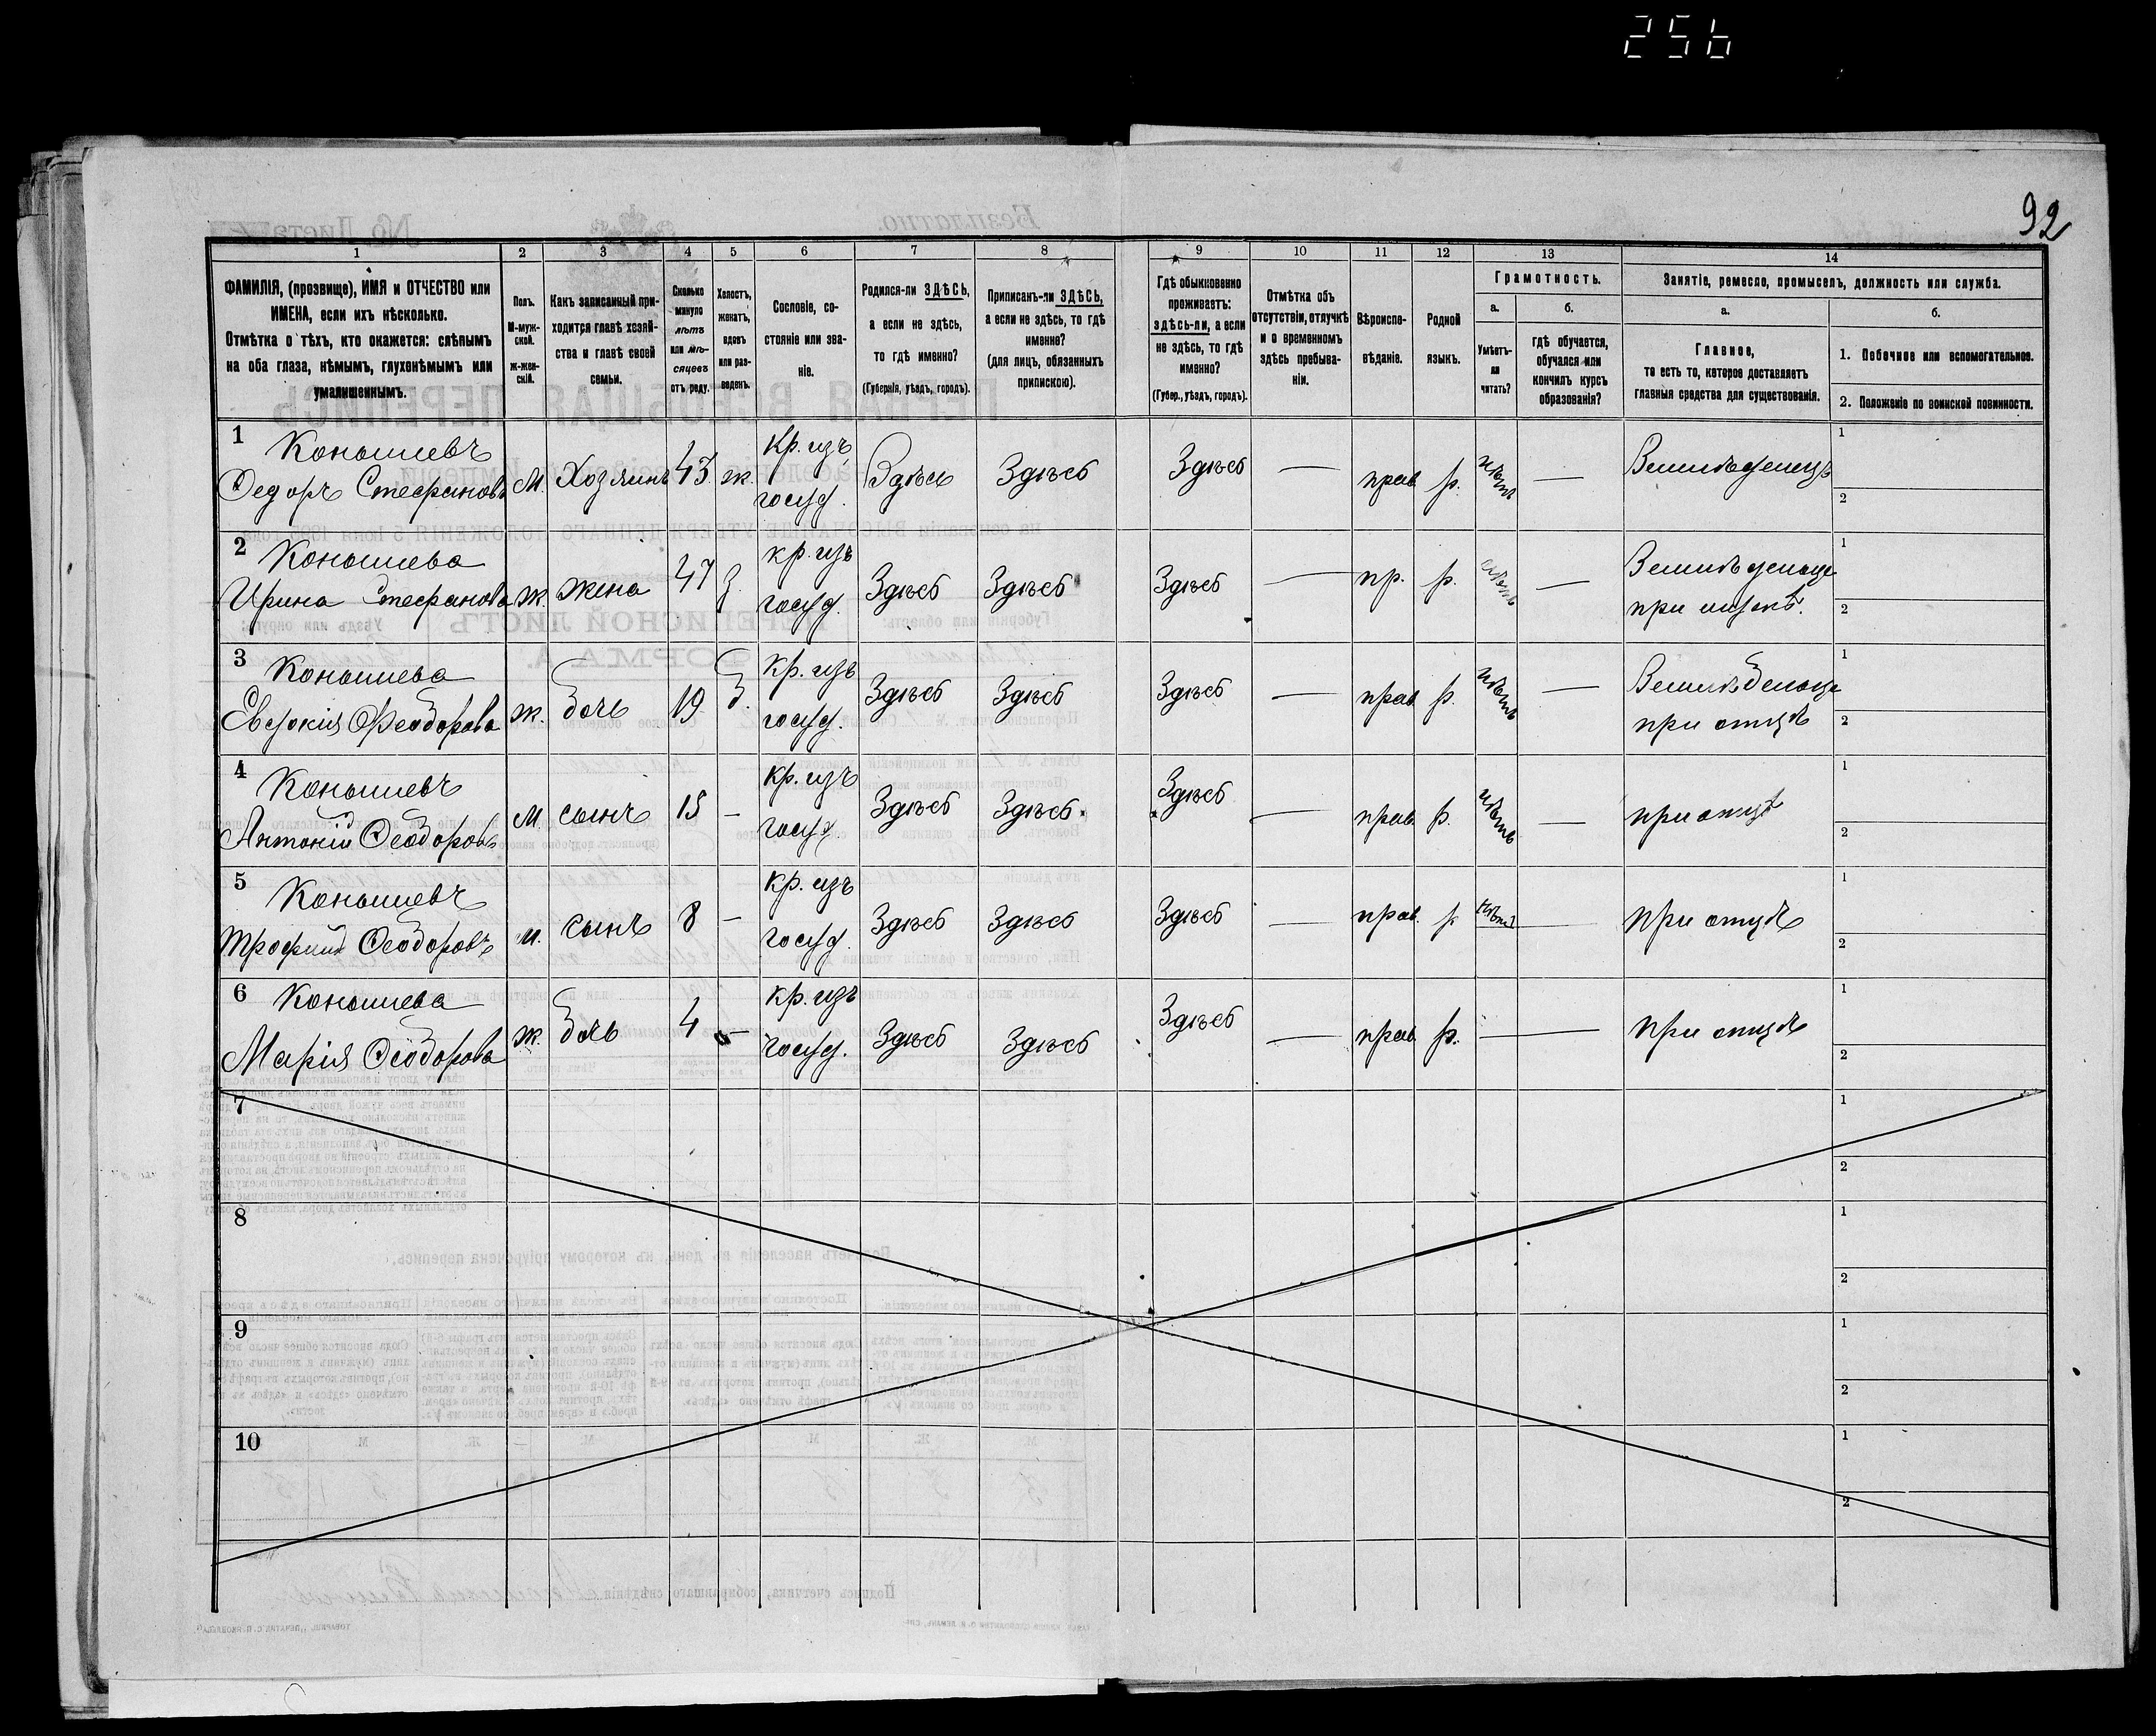 256
92
1 2 3 4 5 6 7 8 9 10 11 12 13 14
ФАМИЛІЯ, (прозвище), ИМЯ и ОТЧЕСТВО или
ИМЕНА, если ихъ нѣсколько.
Отмѣтка о тѣхъ, кто окажется: слѣпымъ
на оба глаза, нѣмымъ, глухонѣмымъ или
умалишеннымъ.
Полъ.
М-муж-
ской.
Ж-жен-
скій.
Какъ записанный при-
ходится главѣ хозяй-
ства и главѣ своей
семьи.
Сколько
минуло
лѣтъ
или мѣ-
сяцевъ
отъ роду.
Холостъ,
женатъ,
вдовъ
или раз-
веденъ.
Сословіе, со-
стояніе или зва-
ніе.
Родился-ли ЗДѢСЬ,
а если не здѣсь,
то гдѣ именно?
(Губернія, уѣздъ, городъ).
Приписанъ-ли ЗДѢСЬ,
а если не здѣсь, то гдѣ
именно?
(для лицъ, обязанныхъ
припискою).
Гдѣ обыкновенно
проживаетъ:
здѣсь-ли, а если
не здѣсь, то гдѣ
именно?
(Губер., уѣздъ, городъ).
Отмѣтка объ
отсутствіи, отлучкѣ
и о временномъ
здѣсь пребыва-
ніи.
Вѣроиспо-
вѣданіе.
Родной
языкъ.
Грамотность.
а.
Умѣетъ-
ли
читать?
б.
гдѣ обучается,
обучался или
кончилъ курсъ
образованія?
Занятіе, ремесло, промыселъ, должность или служба.
а.
Главное,
то есть то, которое доставляетъ
главныя средства для существованія.
б.
1. Побочное или вспомогательное.
2. Положеніе по воинской повинности.
1 Конышевъ
Федоръ Стефановъ М. Хозяинъ 43 ж. Кр. изъ госуд. Здѣсь Здѣсь Здѣсь — прав. р. нѣтъ — Земледѣлецъ 1
2
2 Конышева
Ирина Стефанова Ж. жена 47 з. кр. изъ госуд. Здѣсь Здѣсь Здѣсь — пр. р. нѣтъ — 1
при мужѣ. 2
3 Конышева
Евдокія Феодорова ж. дочь 19 д. кр. изъ госуд. Здѣсь Здѣсь Здѣсь — прав р. нѣтъ — 1
при отцѣ 2
4 Конышевъ
Антоній Феодоровъ М. сынъ 15 — кр. изъ госуд. Здѣсь Здѣсь. Здѣсь — прав. р. нѣтъ — при отцѣ 1
2
5 Конышевъ
Трофимъ Феодоровъ м. сынъ 8 — кр. изъ госуд. Здѣсь Здѣсь Здѣсь — прав. р нѣтъ — при отцѣ 1
2
6 Конышева
Марія Феодорова ж. дочь 4 — кр. изъ госуд. Здѣсь Здѣсь Здѣсь — прав р. — при отцѣ 1
2
7 1
2
8 1
2
9 1
2
10 1
2